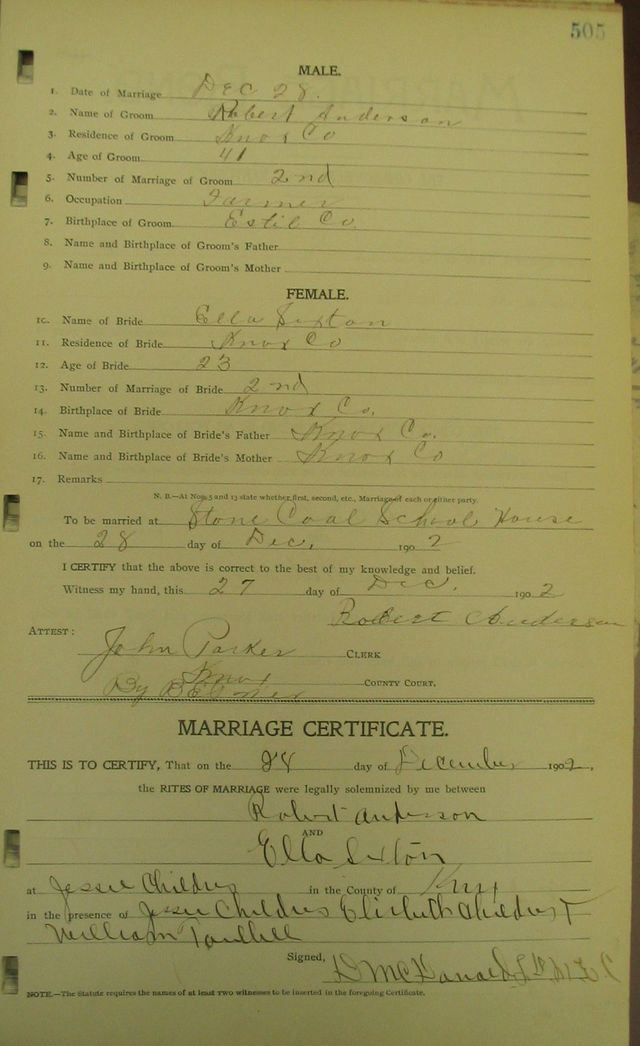 505
MALE.
1. Date of Marriage Dec 28.
2. Name of Groom Robert Anderson
3. Residence of Groom Knox Co
4. Age of Groom 41
5. Number of Marriage of Groom 2nd
6. Occupation Farmer
7. Birthplace of Groom Estil Co.
8. Name and Birthplace of Groom's Father
9. Name and Birthplace of Groom's Mother
FEMALE.
10. Name of Bride Ella Sexton
11. Residence of Bride Knox Co
12. Age of Bride 23
13. Number of Marriage of Bride 2nd
14. Birthplace of Bride Knox Co.
15. Name and Birthplace of Bride's Father Knox Co.
16. Name and Birthplace of Bride's Mother Knox Co
17. Remarks
N. B.—At Nos. 5 and 13 state whether first, second, etc., Marriage of each or either party.
To be married at Stone Coal School House
on the 28 day of Dec. 1902
I CERTIFY that the above is correct to the best of my knowledge and belief.
Witness my hand, this 27 day of Dec. 1902
Robert Anderson
ATTEST:
John Parker CLERK
Knox COUNTY COURT.
By
MARRIAGE CERTIFICATE.
THIS IS TO CERTIFY, That on the 28 day of December 1902,
the RITES OF MARRIAGE were legally solemnized by me between
Robert Anderson
AND
Ella Sexton
at Jessee Childres in the County of Knox
in the presence of Jessee Childres Elizbeth Childres &
William
Signed, D McDonald
NOTE.—The Statute requires the names of at least two witnesses to be inserted in the foregoing Certificate.